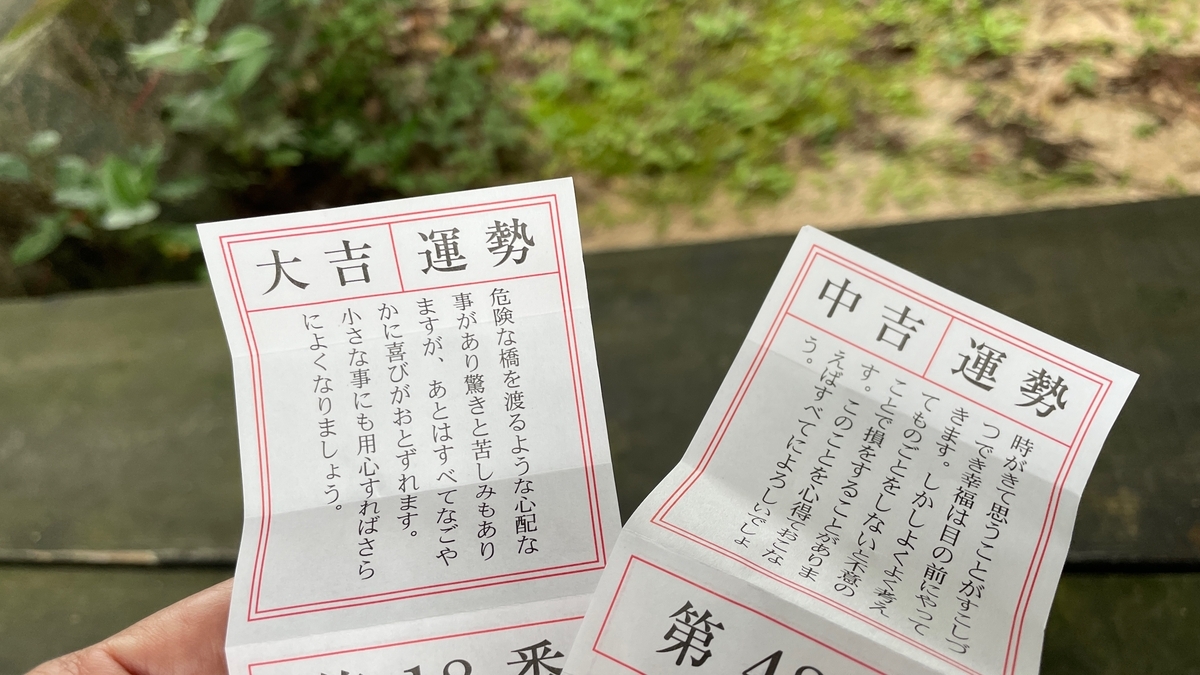 大吉 運勢
危険な橋を渡るような心配な
事があり驚きと苦しみもあり
ますが、あとはすべてなごや
かに喜びがおとずれます。
小さな事にも用心すればさら
によくなりましょう。
第 18 番
中吉 運勢
時がきて思うことがすこしづ
つでき幸福は目の前にやって
きます。しかしよくよく考え
てものごとをしないと不意の
ことで損をすることがありま
す。このことを心得ておこな
えばすべてによろしいでしょ
う。
第 48